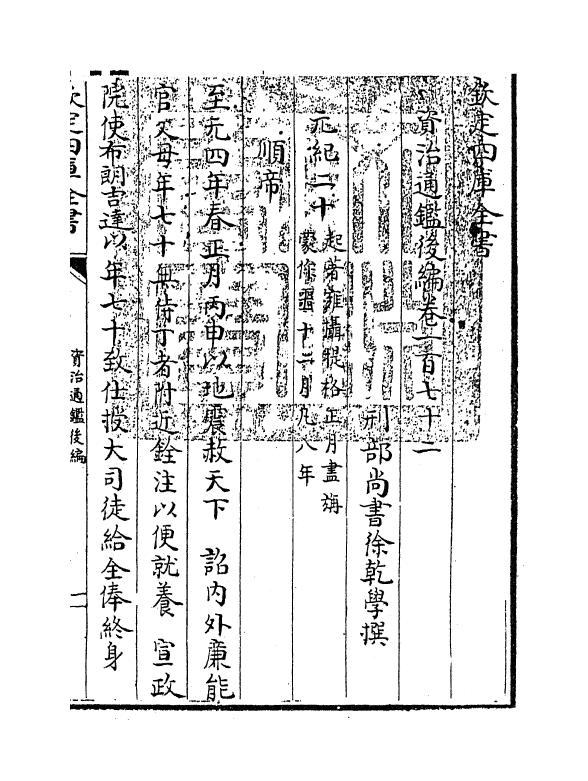 欽定四庫全書
資治通鑑後編卷一百七十二
刑部尚書徐乾學撰
元紀二十 起著雍攝提格正月盡旃
蒙作噩十二月凡八年
順帝
至元四年春正月丙申以地震赦天下 詔内外廉能
官父母年七十無侍丁者附近銓注以便就養 宣政
院使布朗吉達以年七十致仕授大司徒給全俸終身
欽定四庫全書
資治通鑑後編